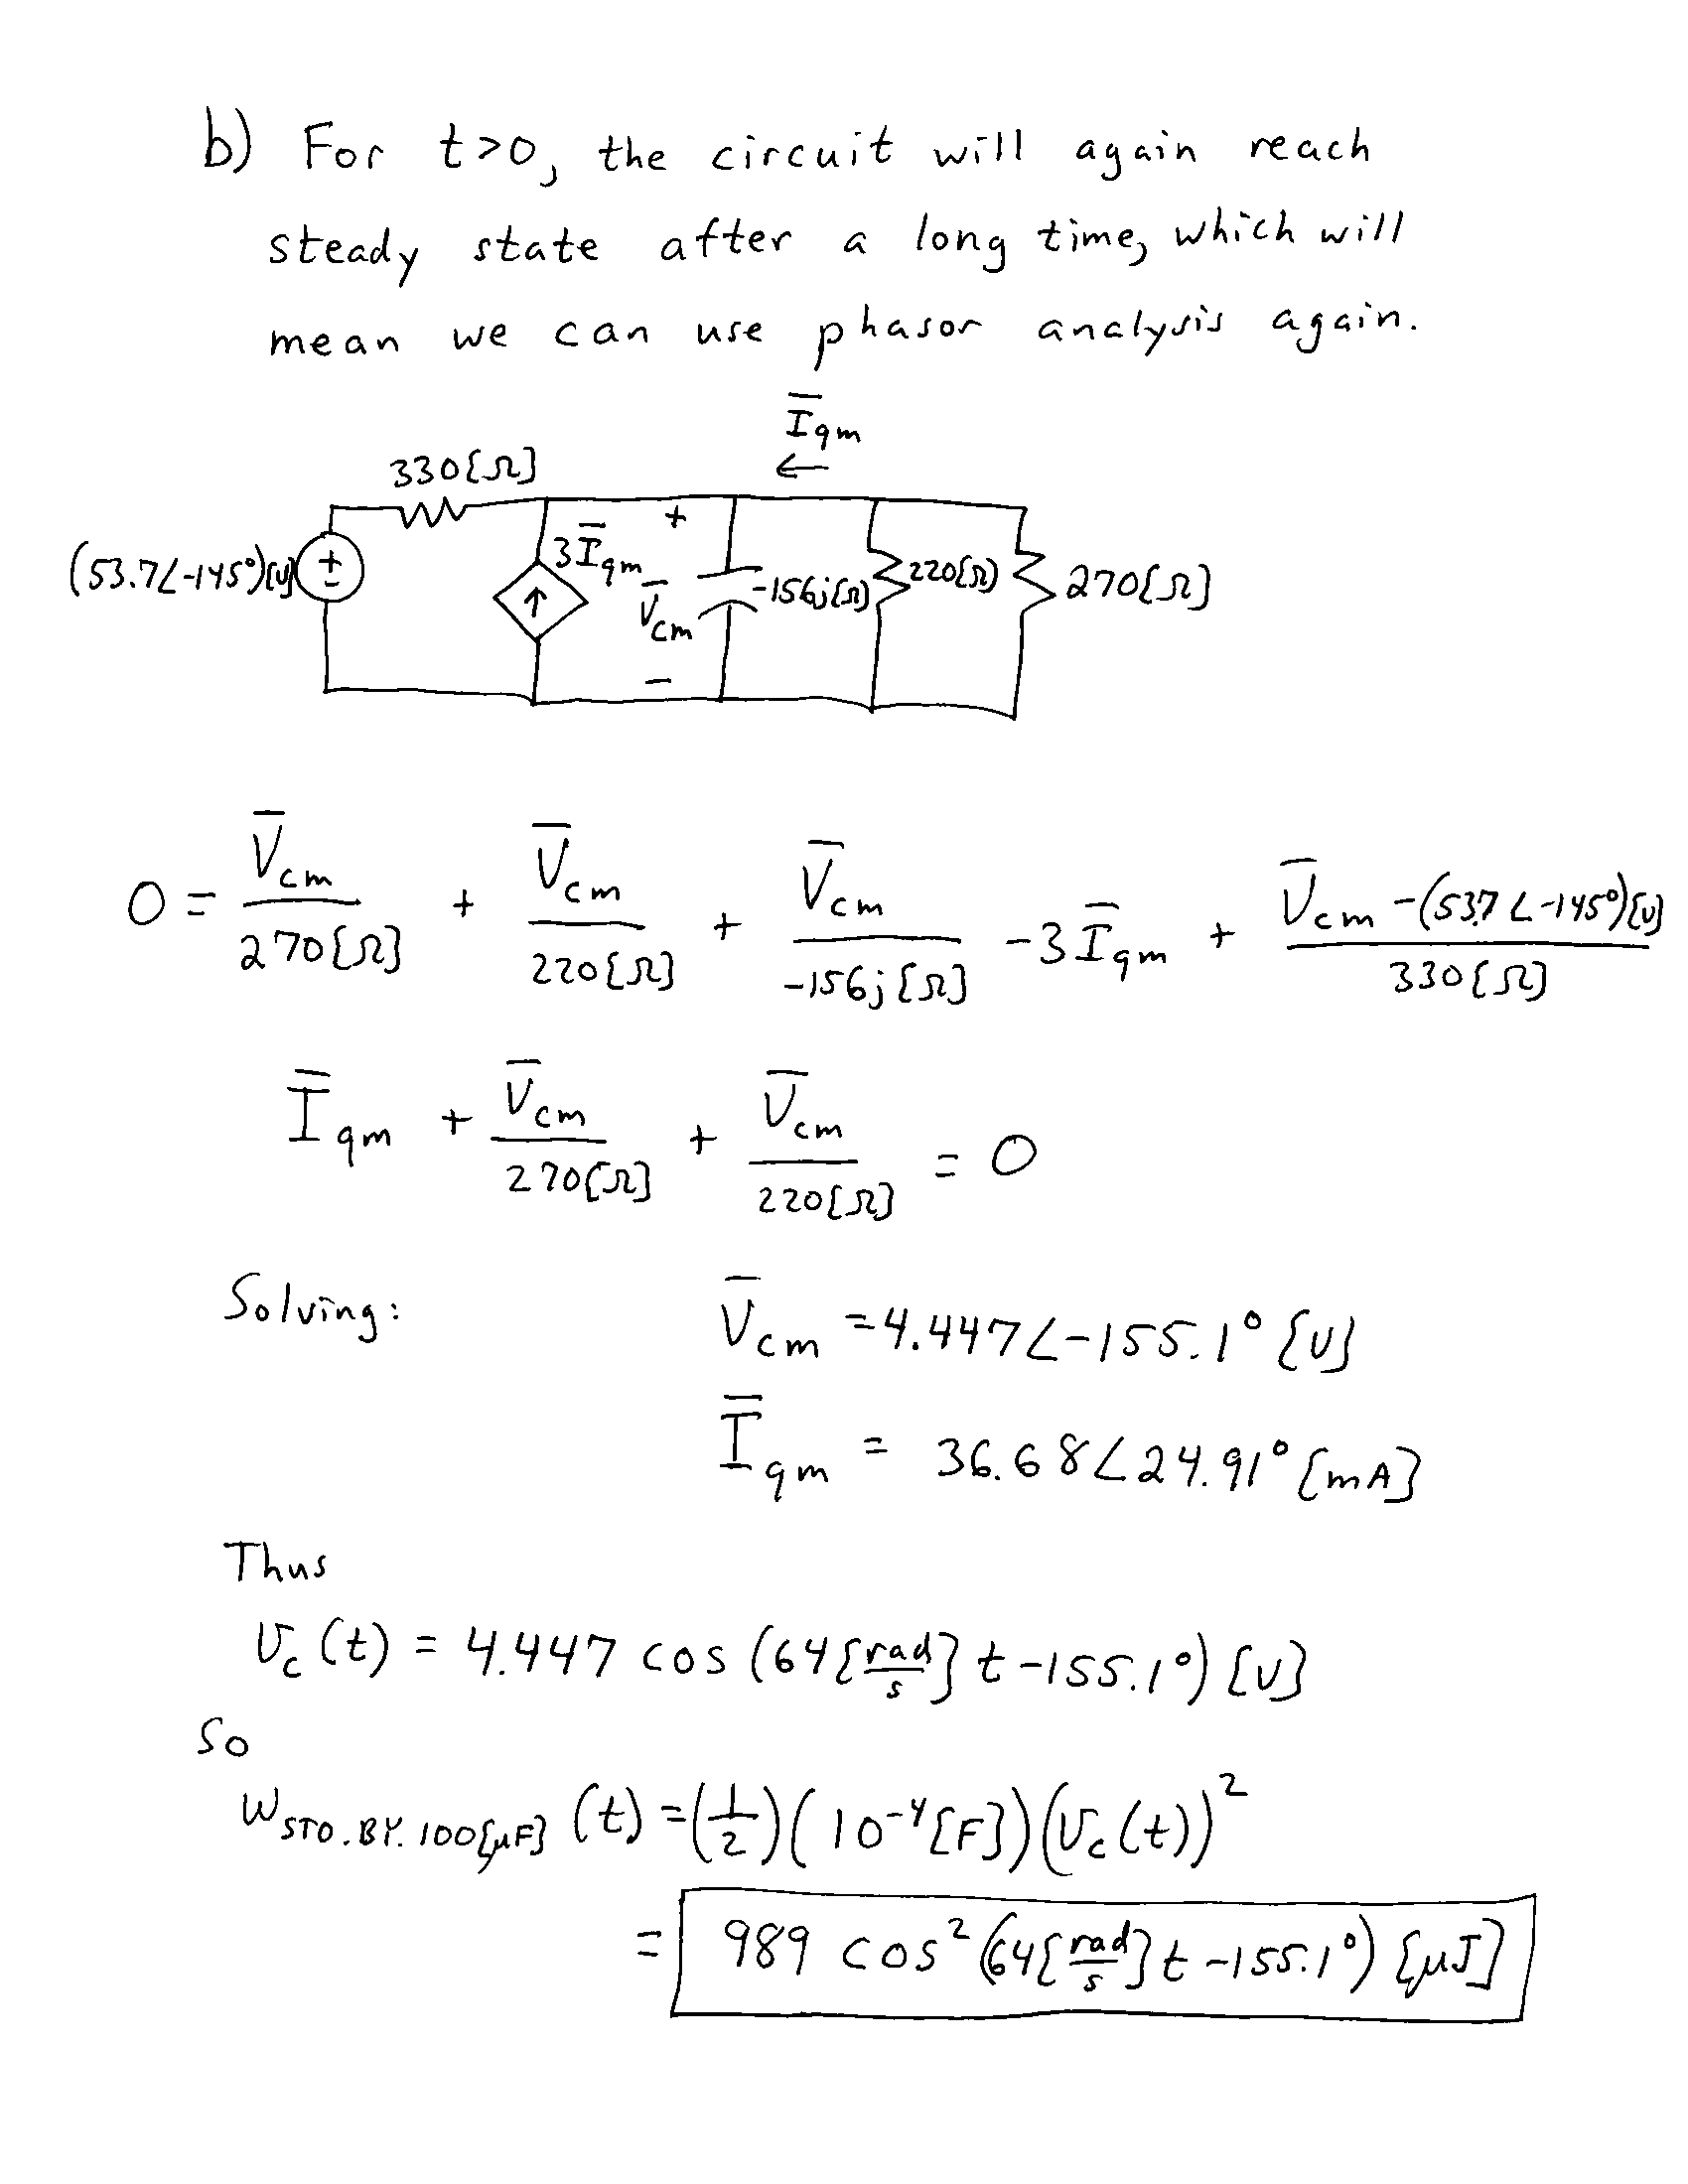 b) For t>0, the circuit will again reach
steady state after a long time, which will
mean we can use phasor analysis again.
I̅qm
←
330[Ω]
(53.7∠-145°)[V] + - ↑ 3I̅qm + V̅cm - -156j[Ω] 220[Ω] 270[Ω]
0 = V̅cm/270[Ω] + V̅cm/220[Ω] + V̅cm/-156j[Ω] -3I̅qm + V̅cm -(53.7∠-145°)[V]/330[Ω]
I̅qm + V̅cm/270[Ω] + V̅cm/220[Ω] = 0
Solving: V̅cm = 4.447∠-155.1° [V]
I̅qm = 36.68∠24.91° [mA]
Thus
vc(t) = 4.447 cos(64[rad/s]t -155.1°) [V]
So
wSTO.BY.100[μF] (t) = (1/2)(10⁻⁴[F])(vc(t))²
= 989 cos²(64[rad/s]t -155.1°) [μJ]